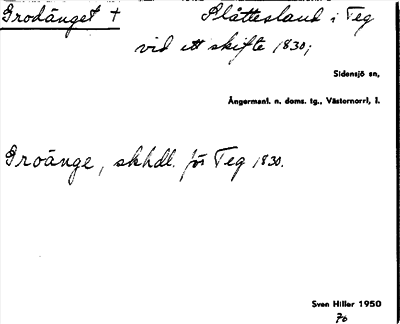 Grodänget † Slåttesland i Teg
vid ett skifte 1830;
Sidensjö sn,
Ångermanl. n. doms. tg., Västernorrl. l.
Groänge, skhdl. för Teg 1830.
Sven Hiller 1950
70